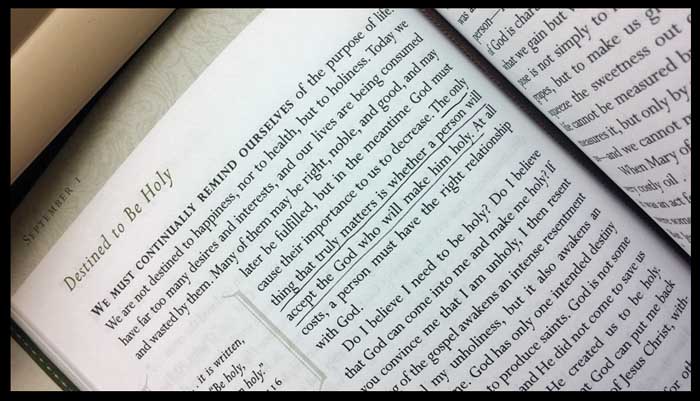 SEPTEMBER 1
Destined to Be Holy
WE MUST CONTINUALLY REMIND OURSELVES of the purpose of life.
We are not destined to happiness, nor to health, but to holiness. Today we
have far too many desires and interests, and our lives are being consumed
and wasted by them. Many of them may be right, noble, and good, and may
later be fulfilled, but in the meantime God must
cause their importance to us to decrease. The only
thing that truly matters is whether a person will
accept the God who will make him holy. At all
costs, a person must have the right relationship
with God.
Do I believe I need to be holy? Do I believe
that God can come into me and make me holy? If
you convince me that I am unholy, I then resent
of the gospel awakens an intense resentment
my unholiness, but it also awakens an
God has only one intended destiny
to produce saints. God is not some
and He did not come to save us
He created us to be holy.
that God can put me back
of Jesus Christ, with
it is written,
"Be holy,
holy."
16
was
person—
of God is char
that we gain but
is not simply to
but to make us
the sweetness out
cannot be measured
measures it, but only by
and we cannot
When Mary of
costly oil
was an act